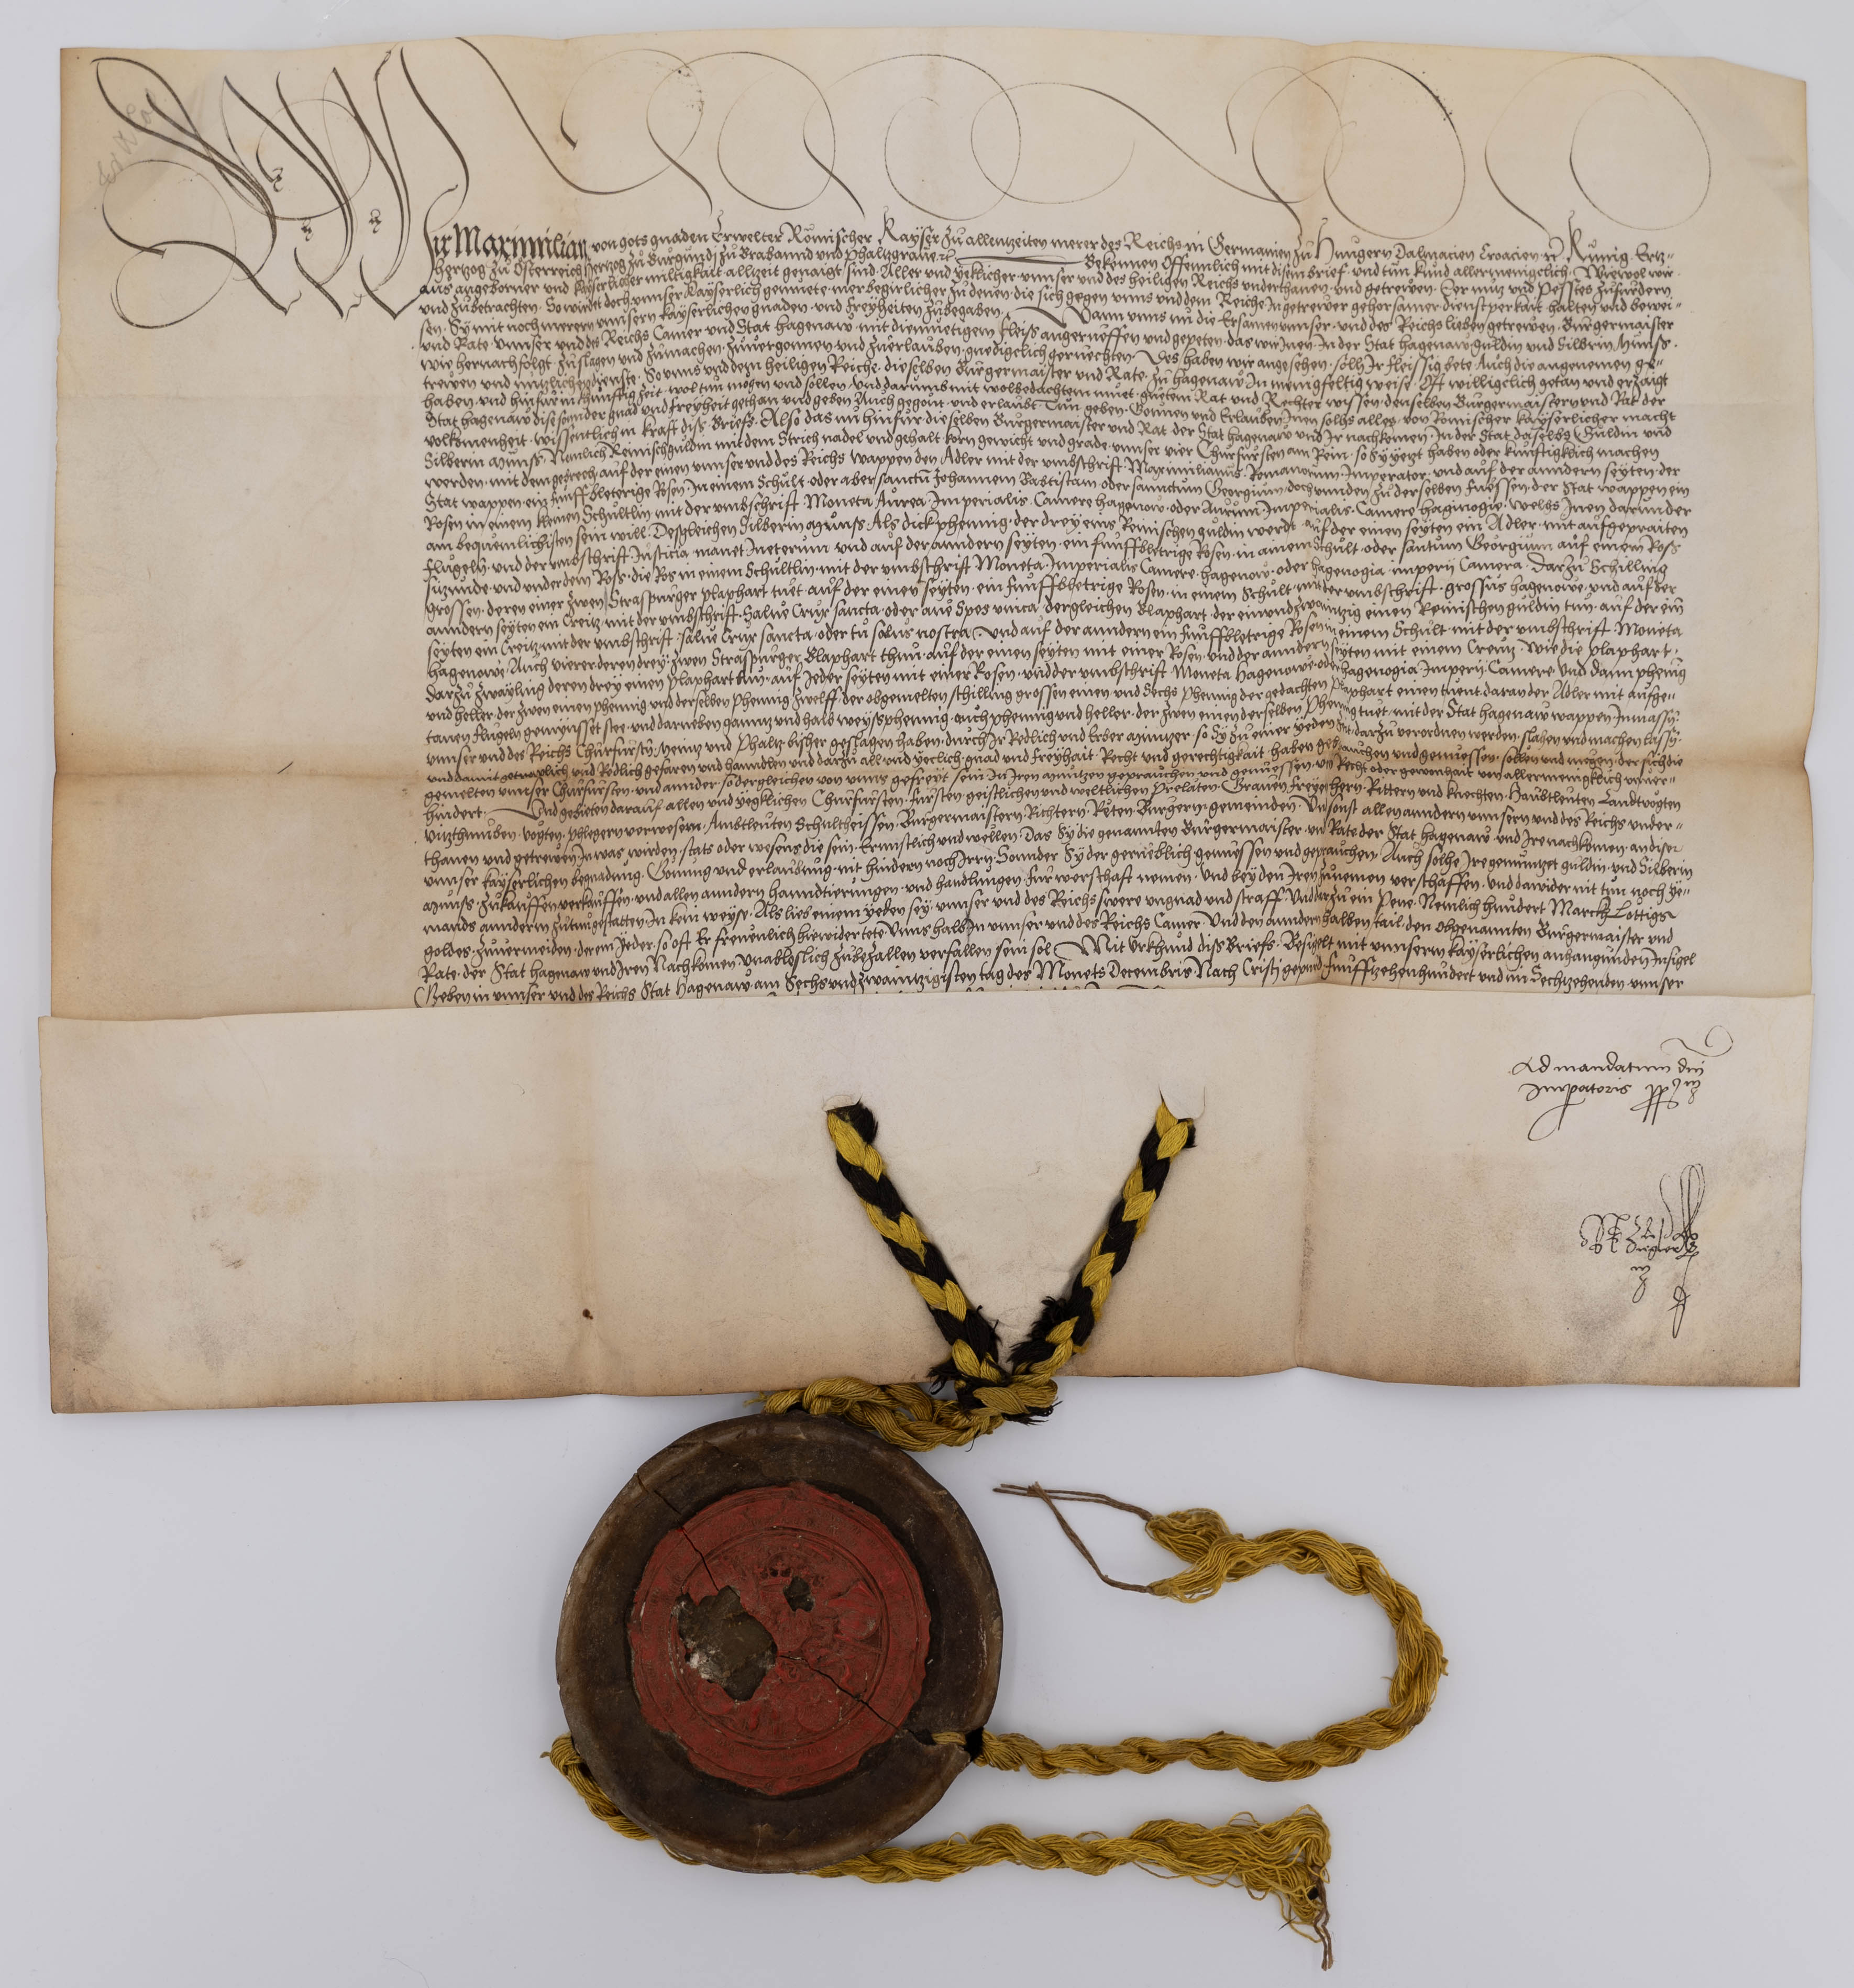 Wir Maximilian von gots gnaden Erwelter Römischer Kayser zu allenntzeiten merer des Reichs in Germanien zu Hungern Dalmacien Croacien ꝛc Kunig Ertz=
hertzog zu Österreich Hertzog zu Burgundj zu Brabannd und Phaltzgrave ꝛc Bekennen Offennlich mit disem brief und tun kund allermenigclich Wiewol wir
aus angeborner und kayserlicher miltigkait allizeit genaigt sind Aller und yetlicher unnser und des heiligen Reichs underthanen und getrewen Eer nutz und Pesstes zufurdern
und zubetrachten So wirdet doch unnser Kayserlich gemuete mer begirlicher zu denen die sich gegen unns und dem Reiche In getrewer gehorsamer dienstperkait halten und bewei=
sen Sy mit noch merern unnsern kayserlichen gnaden und Freyheiten zubegaben Wann unns nu die Ersamen unnser und des Reichs lieben getrewen Burgermaister
und Rate unnser und des Reichs Camer und Stat Hagenaw mit diemuetigem fleiss angerueffen und gepeten das wir Inen In der Stat hagenaw guldin und Silbrin Munss
wie hernachfolgt zuslagen und zumachen zuvergonnen und zuerlauben gnedigclich geruechten Des haben wir angesehen solh Ir fleissig bete Auch die angenemen ge=
trewen und nutzlichen dienste So unns und dem heiligen Reiche dieselben Burgermaister und Rate zu hagenaw In menigfeltig weise Oft willigclich getan und erzaigt
haben und hinfur in kunfftig Zeit wol tun mogen und sollen und darumb mit wolbedachtem muet gutem Rat und Rechter wissen denselben Burgermaistern und Rat der
Stat hagenaw dise sonnder gnad und Freyheit gethan und geben Auch gegont und erlaubt Tun geben Gonnen und Erlauben Inen solhs alles von Romischer kayserlicher macht
volkomenheit wissentlich in kraft diss briefs Also das nu hinfur dieselben Burgermaister und Rat der Stat hagenaw und Ir nachkomen In der Stat daselbs Guldin und
Silberin Munss Nemlich Reinischguldin mit dem Strich nadel und gehalt korn gewicht und grade unnser vier Churfursten am Rein so Sy yetzt haben oder kunfftigklich machen
werden mit dem gebrech auf der einen unnser und des Reichs Wappen den Adler mit der umbschrift Maximilianus Romanorum Imperator und auf der anndern seyten der
Stat wappen ein funffbleterige Rosen In einem Schilt oder aber sanctu Johannem Babtistam oder sanctum Georgium doch unnden zu derselben fuessen der Stat wappen ein
Rosen in einem kleinen Schiltlin mit der umbschrift Moneta Aurea Imperialis Camere hagenow oder Aurum Imperialis Camere hagnogie welhs Inen darunder
am bequemlichisten sein will Desgleichen Silberin Munss Als dickphennig der drey eins Reinischen guldin werdt auf der einen seyten ein Adler mit aufgepraiten
flugeln und der umbschrift Iusticia manet Ineternum und auf der anndern seyten ein funffbletrige Rosen in ainem Schilt oder santum Georgium auf einem Ross
sitzunde und under dem Ross die Ros in einem Schiltlin mit der umbschrift Moneta Imperialis Camere hagenow oder hagenogia imperij Camera Darzu Schilling
grossen deren einer zwen Straspurger plaphart tuet auf der einen seyten ein funffbletrige Rosen in einem Schilt mit der umbschrift grossus hagenowe und auf der
anndern seyten ein Creutz mit der umbschrift Salve Crux sancta oder ave Spes unica dergleichen Blaphart der einundzwaintzig einen Reinischen guldin tun auf der ein
seyten ein Creitz mit der umbschrift salve Crux sancta oder tu solus nostra und auf der anndern ein funffbletrige Rosen in einem Schilt mit der umbschrift Moneta
hagenowe Auch vierer deren drey zwen Straspurger Blaphart thun auf der einen seyten mit einer Rosen und der anndern seyten mit einem Creutz wie die plaphart
darzu zwayling deren drey einen plaphart tun auf Jeder seyten mit einer Rosen und der umbschrift Moneta hagenowe oder hagenogia Imperij Camere und dann phennig
und heller der zwen einen phennig und derselben phennig zwelff der obgemelten schilling grossen einen und Sechs phennig der gedachten plaphart einen tuent daran der Adler mit aufge=
tanen flugeln gemunsset stee und darneben ganntz und halb weyssphennig auch phennig und heller der zwen einen derselben phennig tuet mit der Stat hagenaw wappen Inmassn
unnser und des Reichs Churfursten Mentz und Phaltz bisher geslagen haben durch Ir Redlich und Erber Muntzer so Sy zu einer yeden Zeit darzu verordnen werden slahen und machen lassn
und damit getrewlich und Redlich gefaren und hanndlen und darzu all und yeclich gnad und freyhait Recht und gerechtigkait haben gebrauchen und geniessen sollen und mogen der sich die
gemelten unnser Churfursten und annder so dergleichen von unns gefreyt sein In Iren Muntzen geprauchen und geniessen von Recht oder gewonhait von allermenigklich unver=
hindert Und gebieten darauf allen und yegklichen Churfursten Fursten geistlichen und weltlichen Prelaten Graven Freyen hern Rittern und knechten Haubtleuten Landtvogten
Vitzthumben vogten phlegern verwesern Ambtleuten Schultheissen Burgermaistern Richtern Reten Burgern gemeinden Un sonst allen anndern unnsern und des Reichs under=
thanen und getrewen In was wirden stats oder wesens die sein Ernnstlich und wellen Das Sy die genannten Burgermaister un Rate der Stat hagenaw und Ire nachkomen an diser
unnser kayserlichen begnadung Gonnung und erlaubung nit hindern noch Irrn Sonnder Sy der gerueblich geniessen und geprauchen Auch solhe Ire gemuntzet guldin und Silberin
Munss zukauffen verkauffen und allen anndern hanndtierungen und handlungen fur werschaft nemen Und bey den Iren zunemen verschaffen und dawider nit tun noch ye=
mands anndern zutun gestatten In kein weyse Als lieb einem yeden sey unnser und des Reichs swere ungnad und straff Und darzu ein Pene Nemlich hundert Marckh Lottigs
goldes zuvermeiden deren Yeder so oft Er frevenlich hiewider tete Unns halb In unnser und des Reichs Camer Und den anndern halben tail den obgenannten Burgermaister und
Rate der Stat hagenaw und Iren Nachkomen Unableslich zubezallen verfallen sein sol Mit Urkhund diss Briefs Besigelt mit unnserm kayserlichen anhangunden Insigel
Geben in unnser und des Reichs Stat Hagenaw am Sechsundzwaintzigisten tag des Monets Decembris Nach Cristj gepurd Funffzehenhundert und im Sechtzehenden unnser
Ad mandatum dni
Impatoris pp